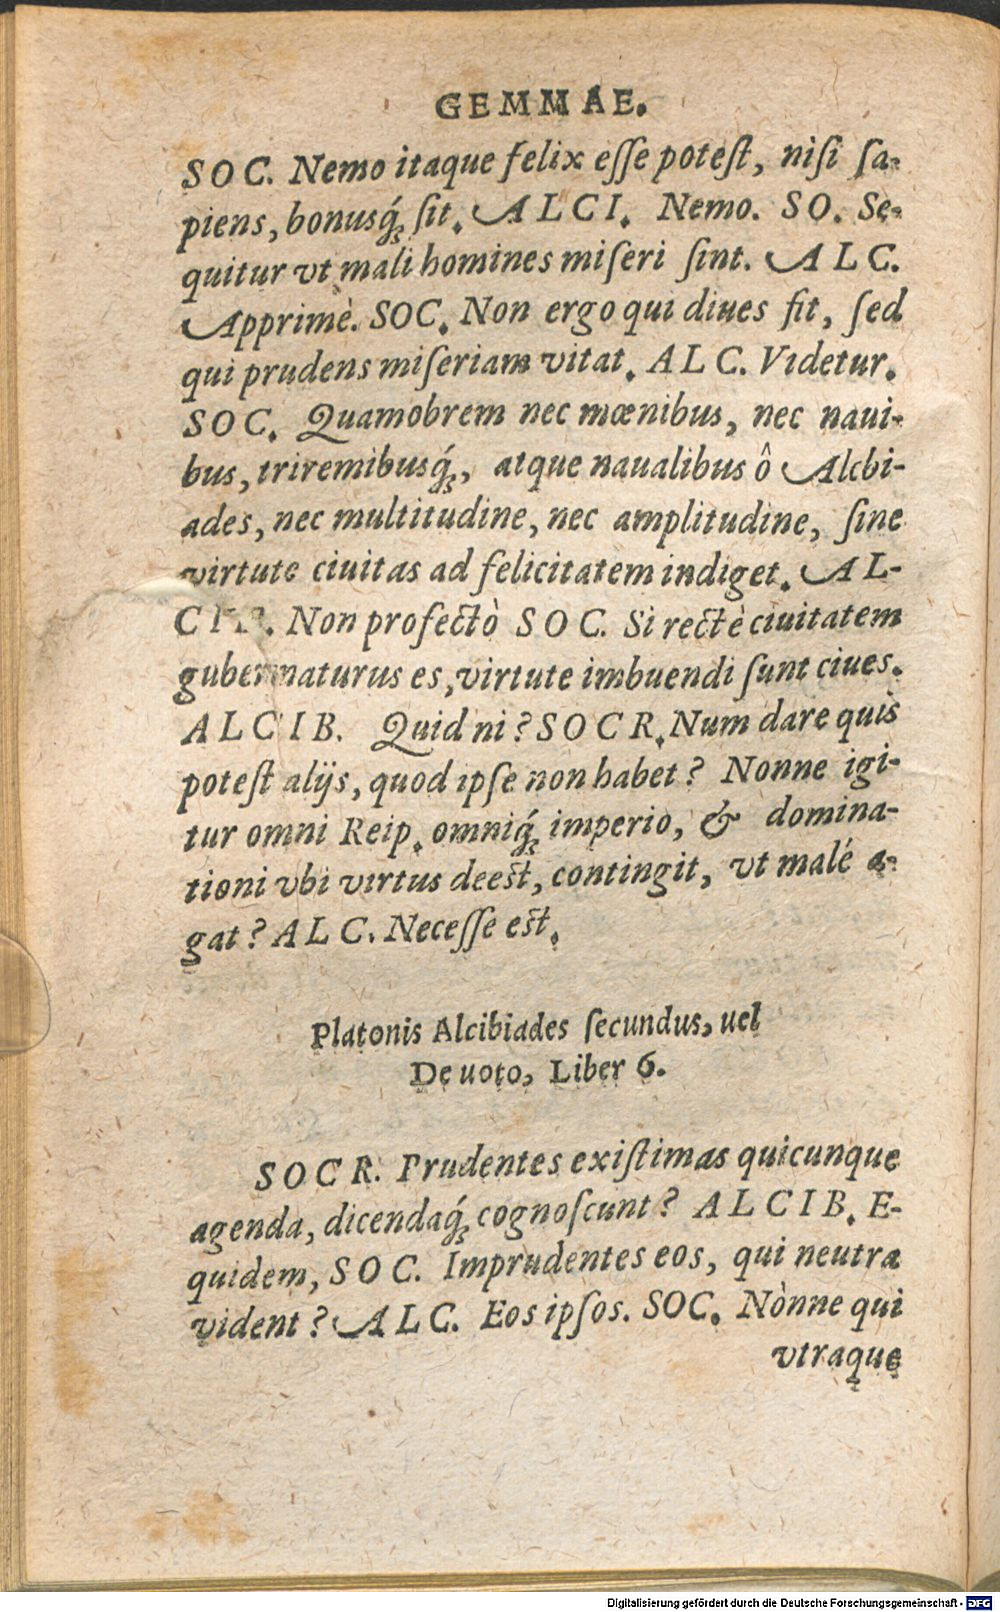 GEMMAE.
SOC. Nemo itaque felix eſſe poteſt, niſi ſa-
piens, bonusq́; ſit. ALCI. Nemo. SO. Se-
quitur vt mali homines miſeri ſint. ALC.
Apprimè. SOC. Non ergo qui diues fit, ſed
qui prudens miſeriam vitat. ALC. Videtur.
SOC. Quamobrem nec mœnibus, nec naui-
bus, triremibusq́;, atque naualibus ô Alcbi-
ades, nec multitudine, nec amplitudine, ſine
virtute ciuitas ad felicitatem indiget. AL-
CIB. Non profectò SOC. Si rectè ciuitatem
gubernaturus es, virtute imbuendi ſunt ciues.
ALCIB. Quid ni? SOCR. Num dare quis
poteſt alijs, quod ipſe non habet? Nonne igi-
tur omni Reip. omniq́; imperio, & domina-
tioni vbi virtus deest, contingit, vt malé a-
gat? ALC. Neceſſe est.
Platonis Alcibiades ſecundus, uel
De uoto, Liber 6.
SOCR. Prudentes exiſtimas quicunque
agenda, dicendaq́; cognoſcunt? ALCIB. E-
quidem, SOC. Imprudentes eos, qui neutra
vident? ALC. Eos ipſos. SOC. Nònne qui
vtraque
Digitalisierung gefördert durch die Deutsche Forschungsgemeinschaft - DFG